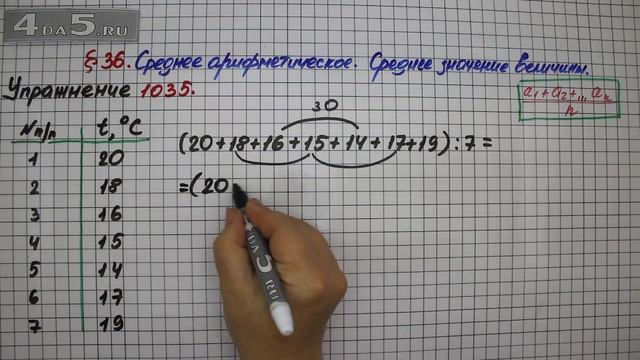 4DA5.RU
§ 36. Среднее арифметическое. Среднее значение величины.
Упражнение 1035.
a₁+a₂+...aₙ
n
30
(20+18+16+15+14+17+19):7=
=(20
N п/п t, °C
1 20
2 18
3 16
4 15
5 14
6 17
7 19
4DA5.RU